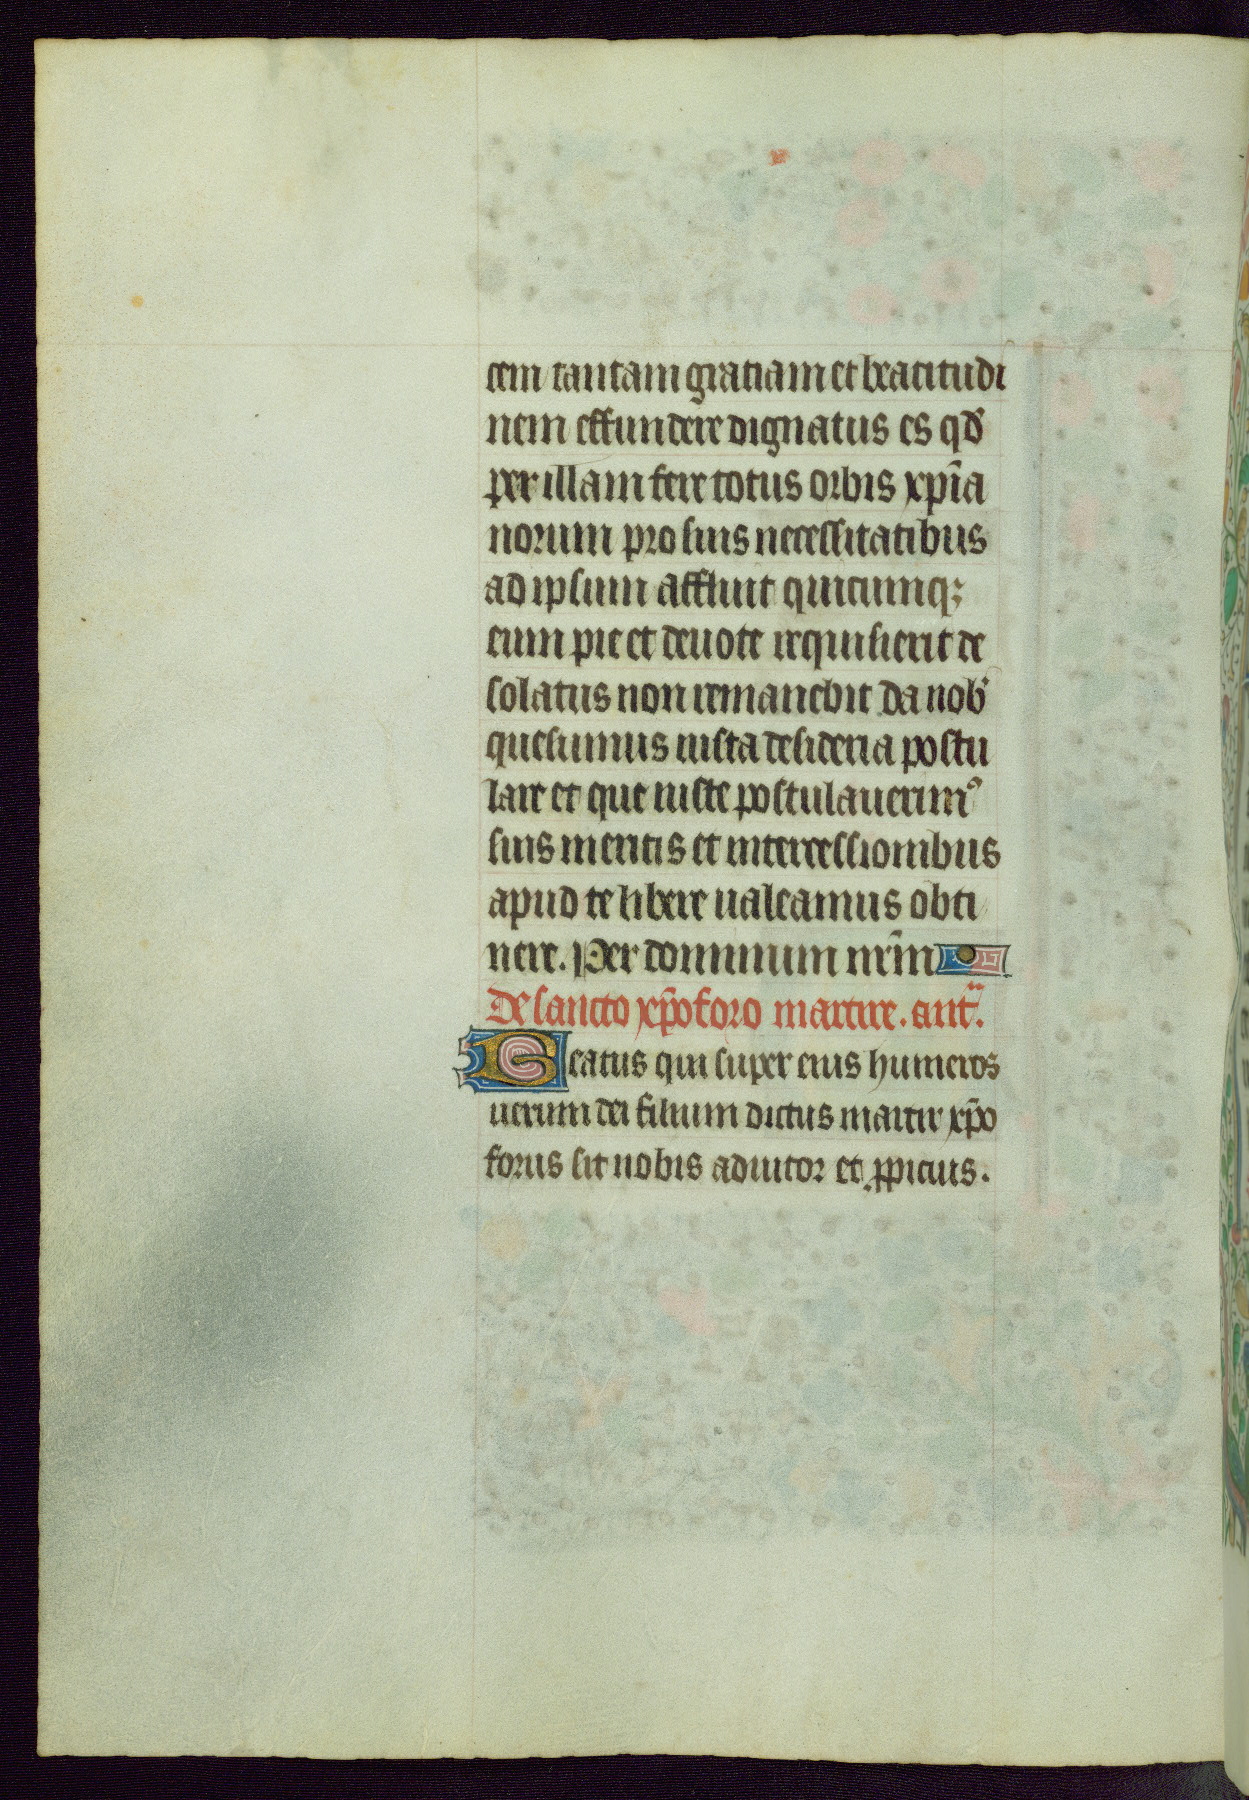 cem tantam gratiam et beatitudi
nem effundere dignatus es qd'
per illam fere totus orbis xp̄ia
norum pro suis necessitatibus
ad ipsum affluit quicumqꝫ
eum pie et deuote requisierit de
solatus non remanebit da nob'
quesumus iusta desideria postu
lare et que iuste postulauerimꝰ
suis meritis et intercessionibus
apud te libere ualeamus obti
nere. Per dominum nr̄m
De sancto xp̄oforo martire. ant.
Beatus qui super eius humeros
uerum dei filium dictus martir xp̄o
forus sit nobis adiutor et ꝓpicius.